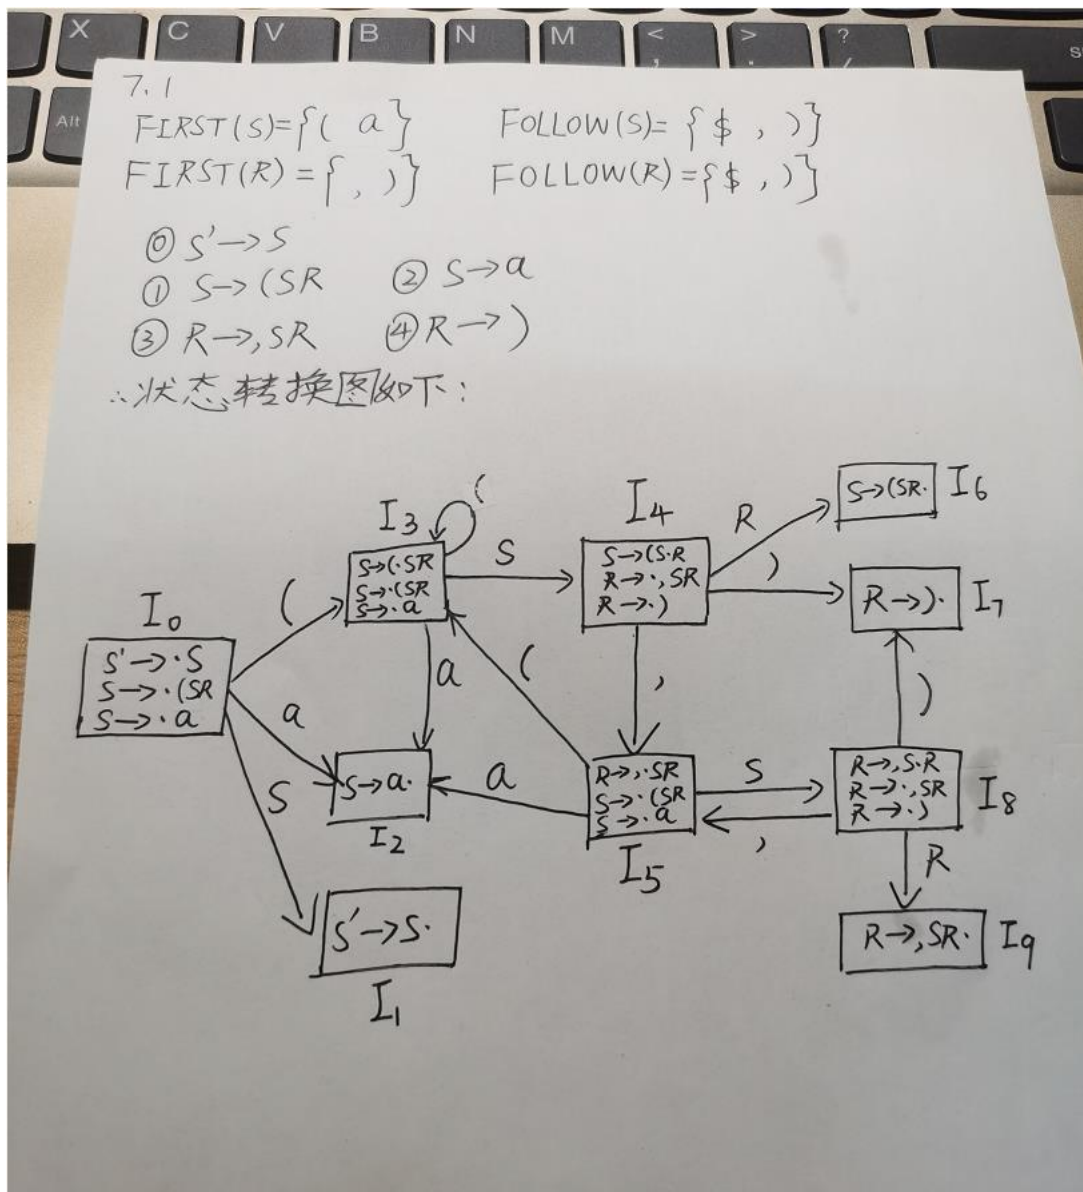 X C V B N M < , > . ? / S
Alt
7.1
FIRST(S)={( a} FOLLOW(S)= {$ , )}
FIRST(R)={ , )} FOLLOW(R)={$ , )}
⓪ S'→S
① S→(SR ② S→a
③ R→,SR ④ R→)
∴状态转换图如下:
I0
S'→·S
S→·(SR
S→·a
(
a
S
I3
(
S→(·SR
S→·(SR
S→·a
S
a
I4
S→(S·R
R→·,SR
R→·)
R
)
,
S→(SR· I6
R→)· I7
S→a·
I2
(
a
R→,·SR
S→·(SR
S→·a
I5
S
,
R→,S·R
R→·,SR
R→·)
I8
)
R
S'→S·
I1
R→,SR· I9